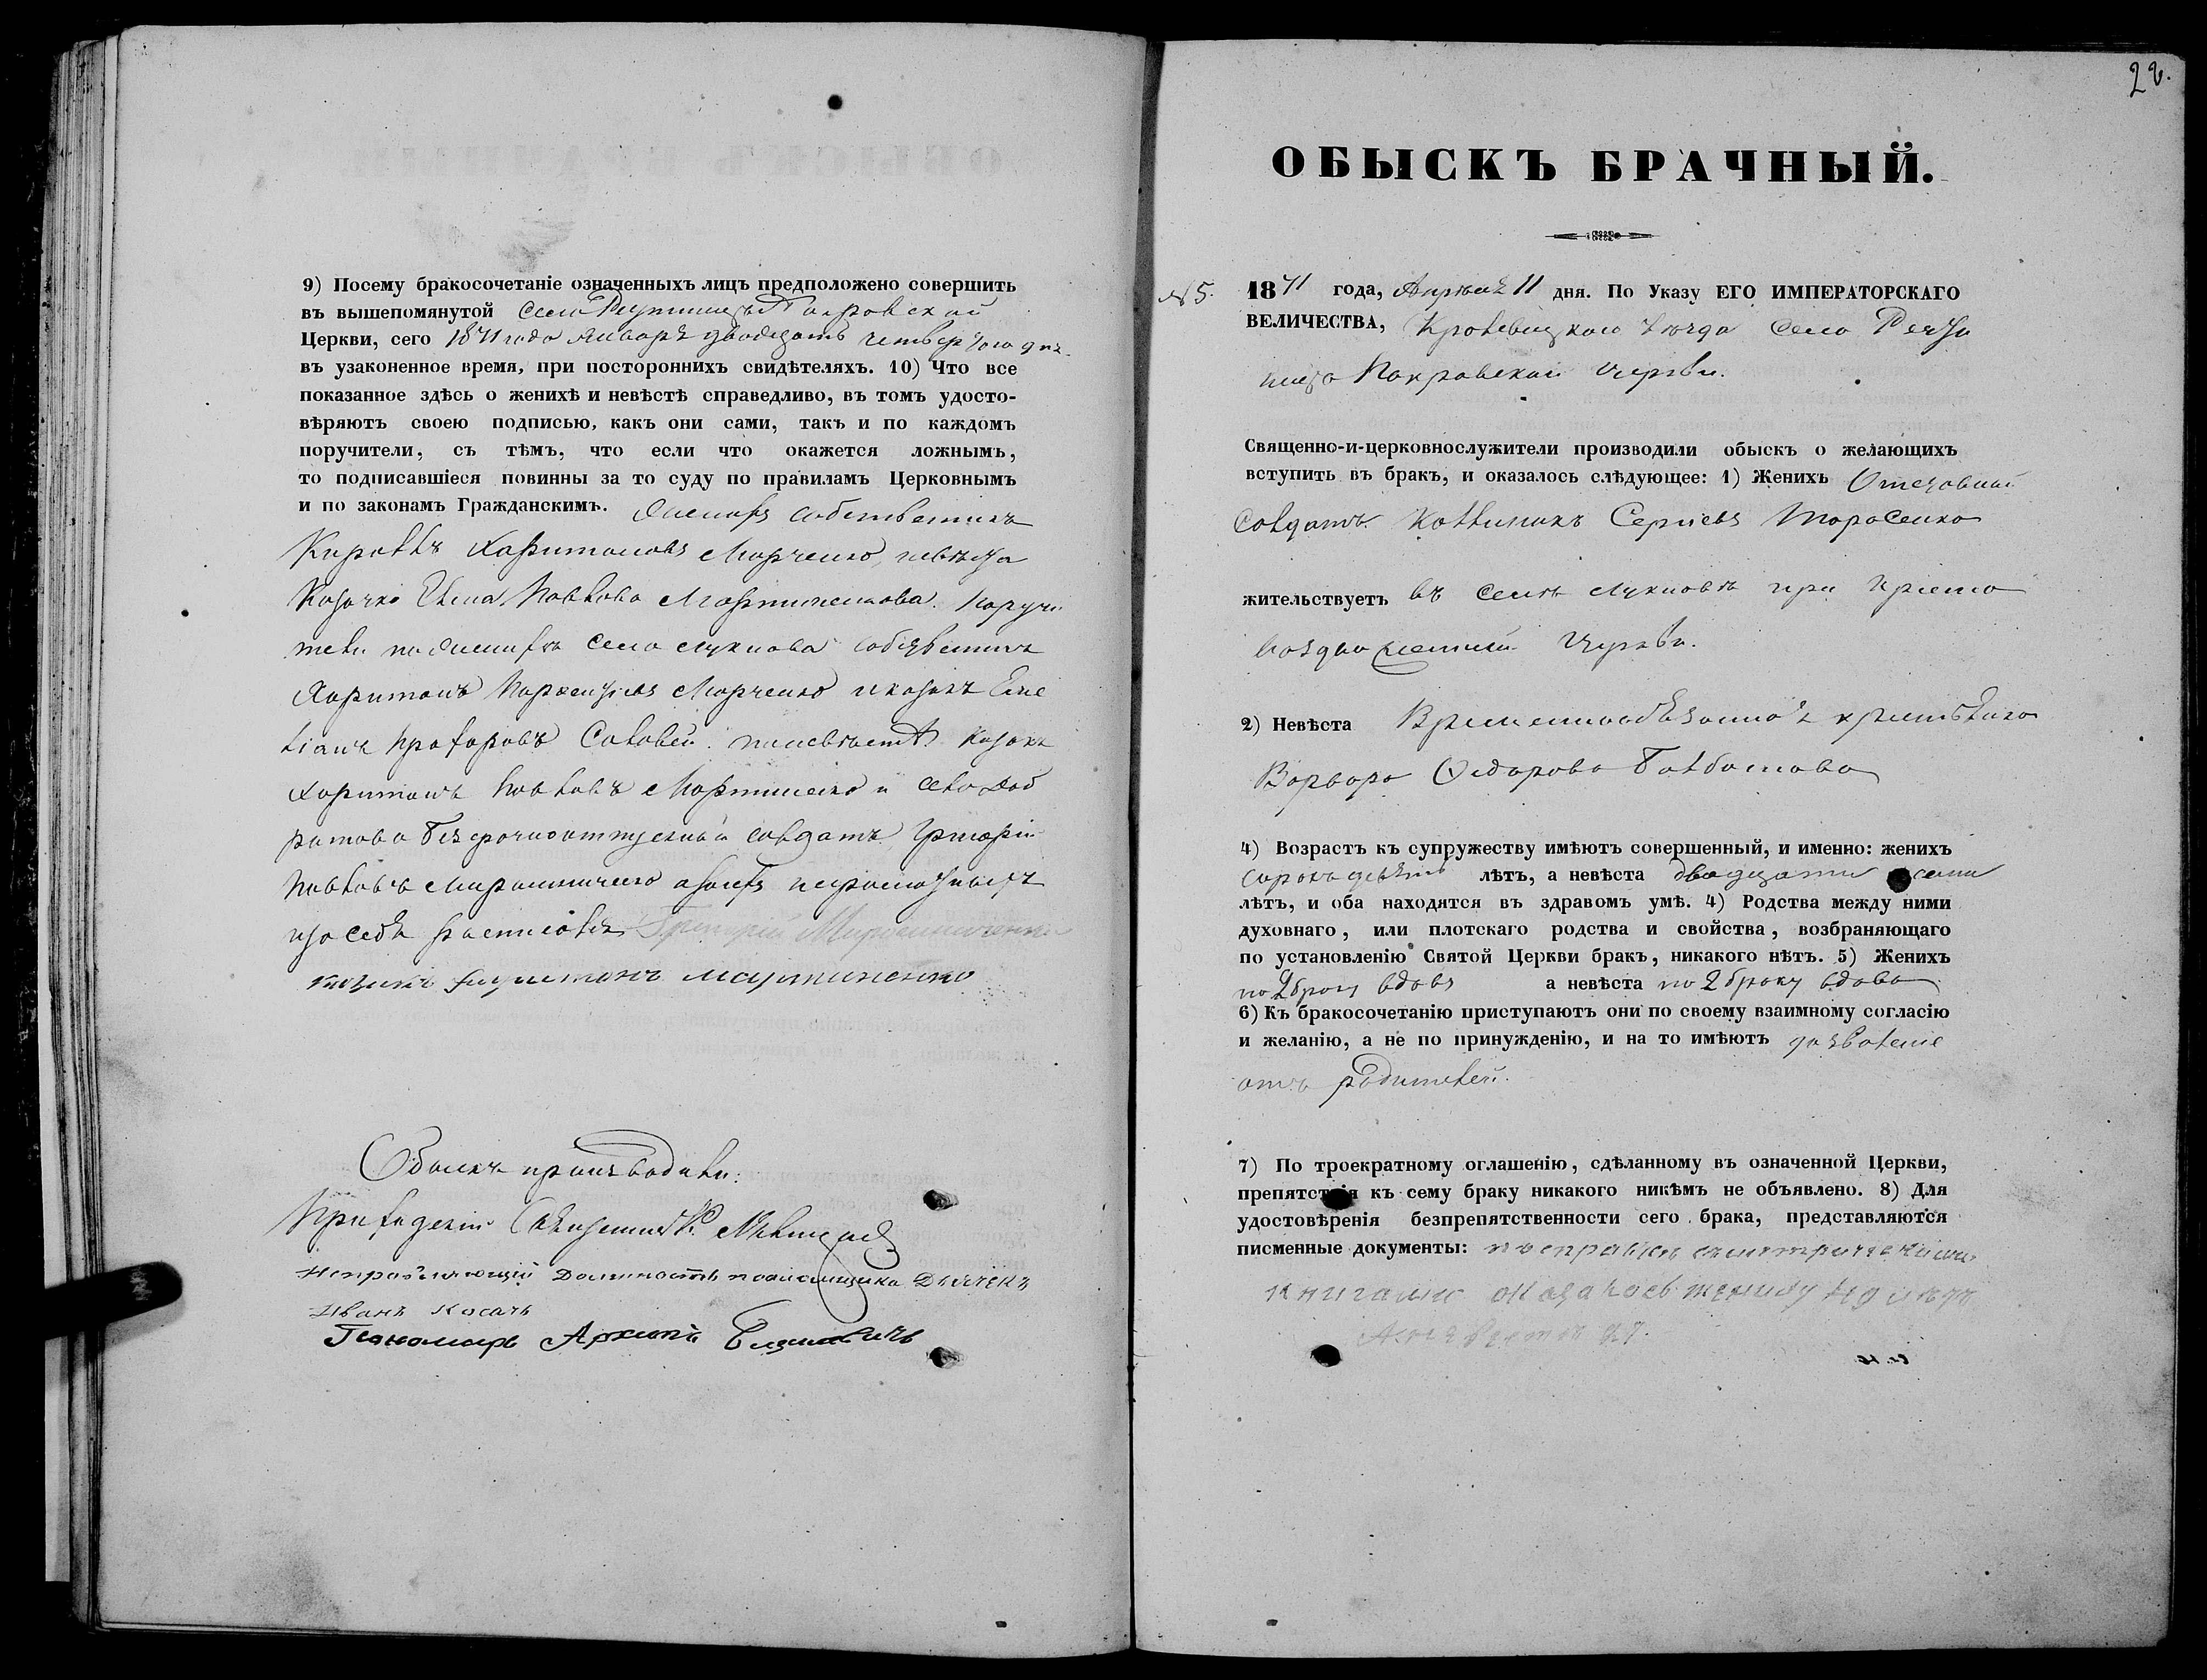 9) Посему бракосочетаніе означенныхъ лицъ предположено совершить
въ вышепомянутой села Покровской
Церкви, сего 1871 года Января двадцать четвертого дня
въ узаконенное время, при постороннихъ свидѣтеляхъ. 10) Что все
показанное здѣсь о женихѣ и невѣстѣ справедливо, въ томъ удосто-
вѣряютъ своею подписью, какъ они сами, такъ и по каждомъ
поручители, съ тѣмъ, что если что окажется ложнымъ,
то подписавшіеся повинны за то суду по правиламъ Церковнымъ
и по законамъ Гражданскимъ. Женихъ собственникъ
Кириллъ Харитоновъ Марченко, невѣста
Козачка Павлова Мартиненкова. Поручи
тели по женихѣ села Лукнова собственникъ
Харитонъ Марченко и козакъ Еме
ліанъ Прохоровъ Соловей. по невѣстѣ козакъ
Харитонъ Павловъ Мартиненко и села Доб
ротова безсрочноотпускный солдатъ Григорій
Павловъ Мирошниченко
за себя росписался Григорій Мирошниченко
козакъ Харитонъ Мартиненко
Обыскъ производили:
Приходскій Священникъ
Исправляющій Должность Дьячекъ
Иванъ Косачъ
Пономарь Архипъ
22.
ОБЫСКЪ БРАЧНЫЙ.
№ 5. 1871 года, Апрѣля 11 дня. По Указу ЕГО ИМПЕРАТОРСКАГО
ВЕЛИЧЕСТВА, Кролевецкаго уѣзда села Ряути
неца Покровской Церкви.
Священно-и-церковнослужители производили обыскъ о желающихъ
вступить въ бракъ, и оказалось слѣдующее: 1) Женихъ
Солдатъ Каллиникъ Сергіевъ Тарасенко
жительствуетъ въ селѣ Лукновѣ при Кресто
воздвиженской Церкви.
2) Невѣста Временнообязанная крестьянка
Варвара Сидорова
4) Возрастъ къ супружеству имѣютъ совершенный, и именно: женихъ
сорокъ девять лѣтъ, а невѣста двадцати семи
лѣтъ, и оба находятся въ здравомъ умѣ. 4) Родства между ними
духовнаго, или плотскаго родства и свойства, возбраняющаго
по установленію Святой Церкви бракъ, никакого нѣтъ. 5) Женихъ
по 2 браку вдовъ а невѣста по 2 браку вдова
6) Къ бракосочетанію приступаютъ они по своему взаимному согласію
и желанію, а не по принужденію, и на то имѣютъ дозволеніе
отъ родителей.
7) По троекратному оглашенію, сдѣланному въ означенной Церкви,
препятствія къ сему браку никакого никѣмъ не объявлено. 8) Для
удостовѣренія безпрепятственности сего брака, представляются
писменные документы: по справкѣ съ метрическими
книгами оказалось жениху 49 лѣтъ
А невѣстѣ 27.